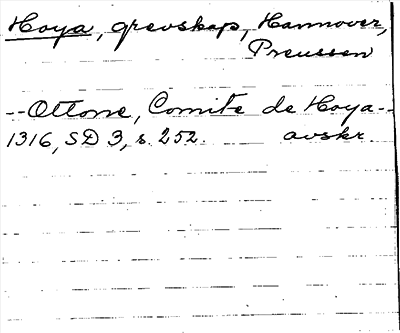 Hoya, grevskap, Hannover,
Preussen
--Ottone, Comite de Hoya--
1316, SD 3, s. 252. avskr.